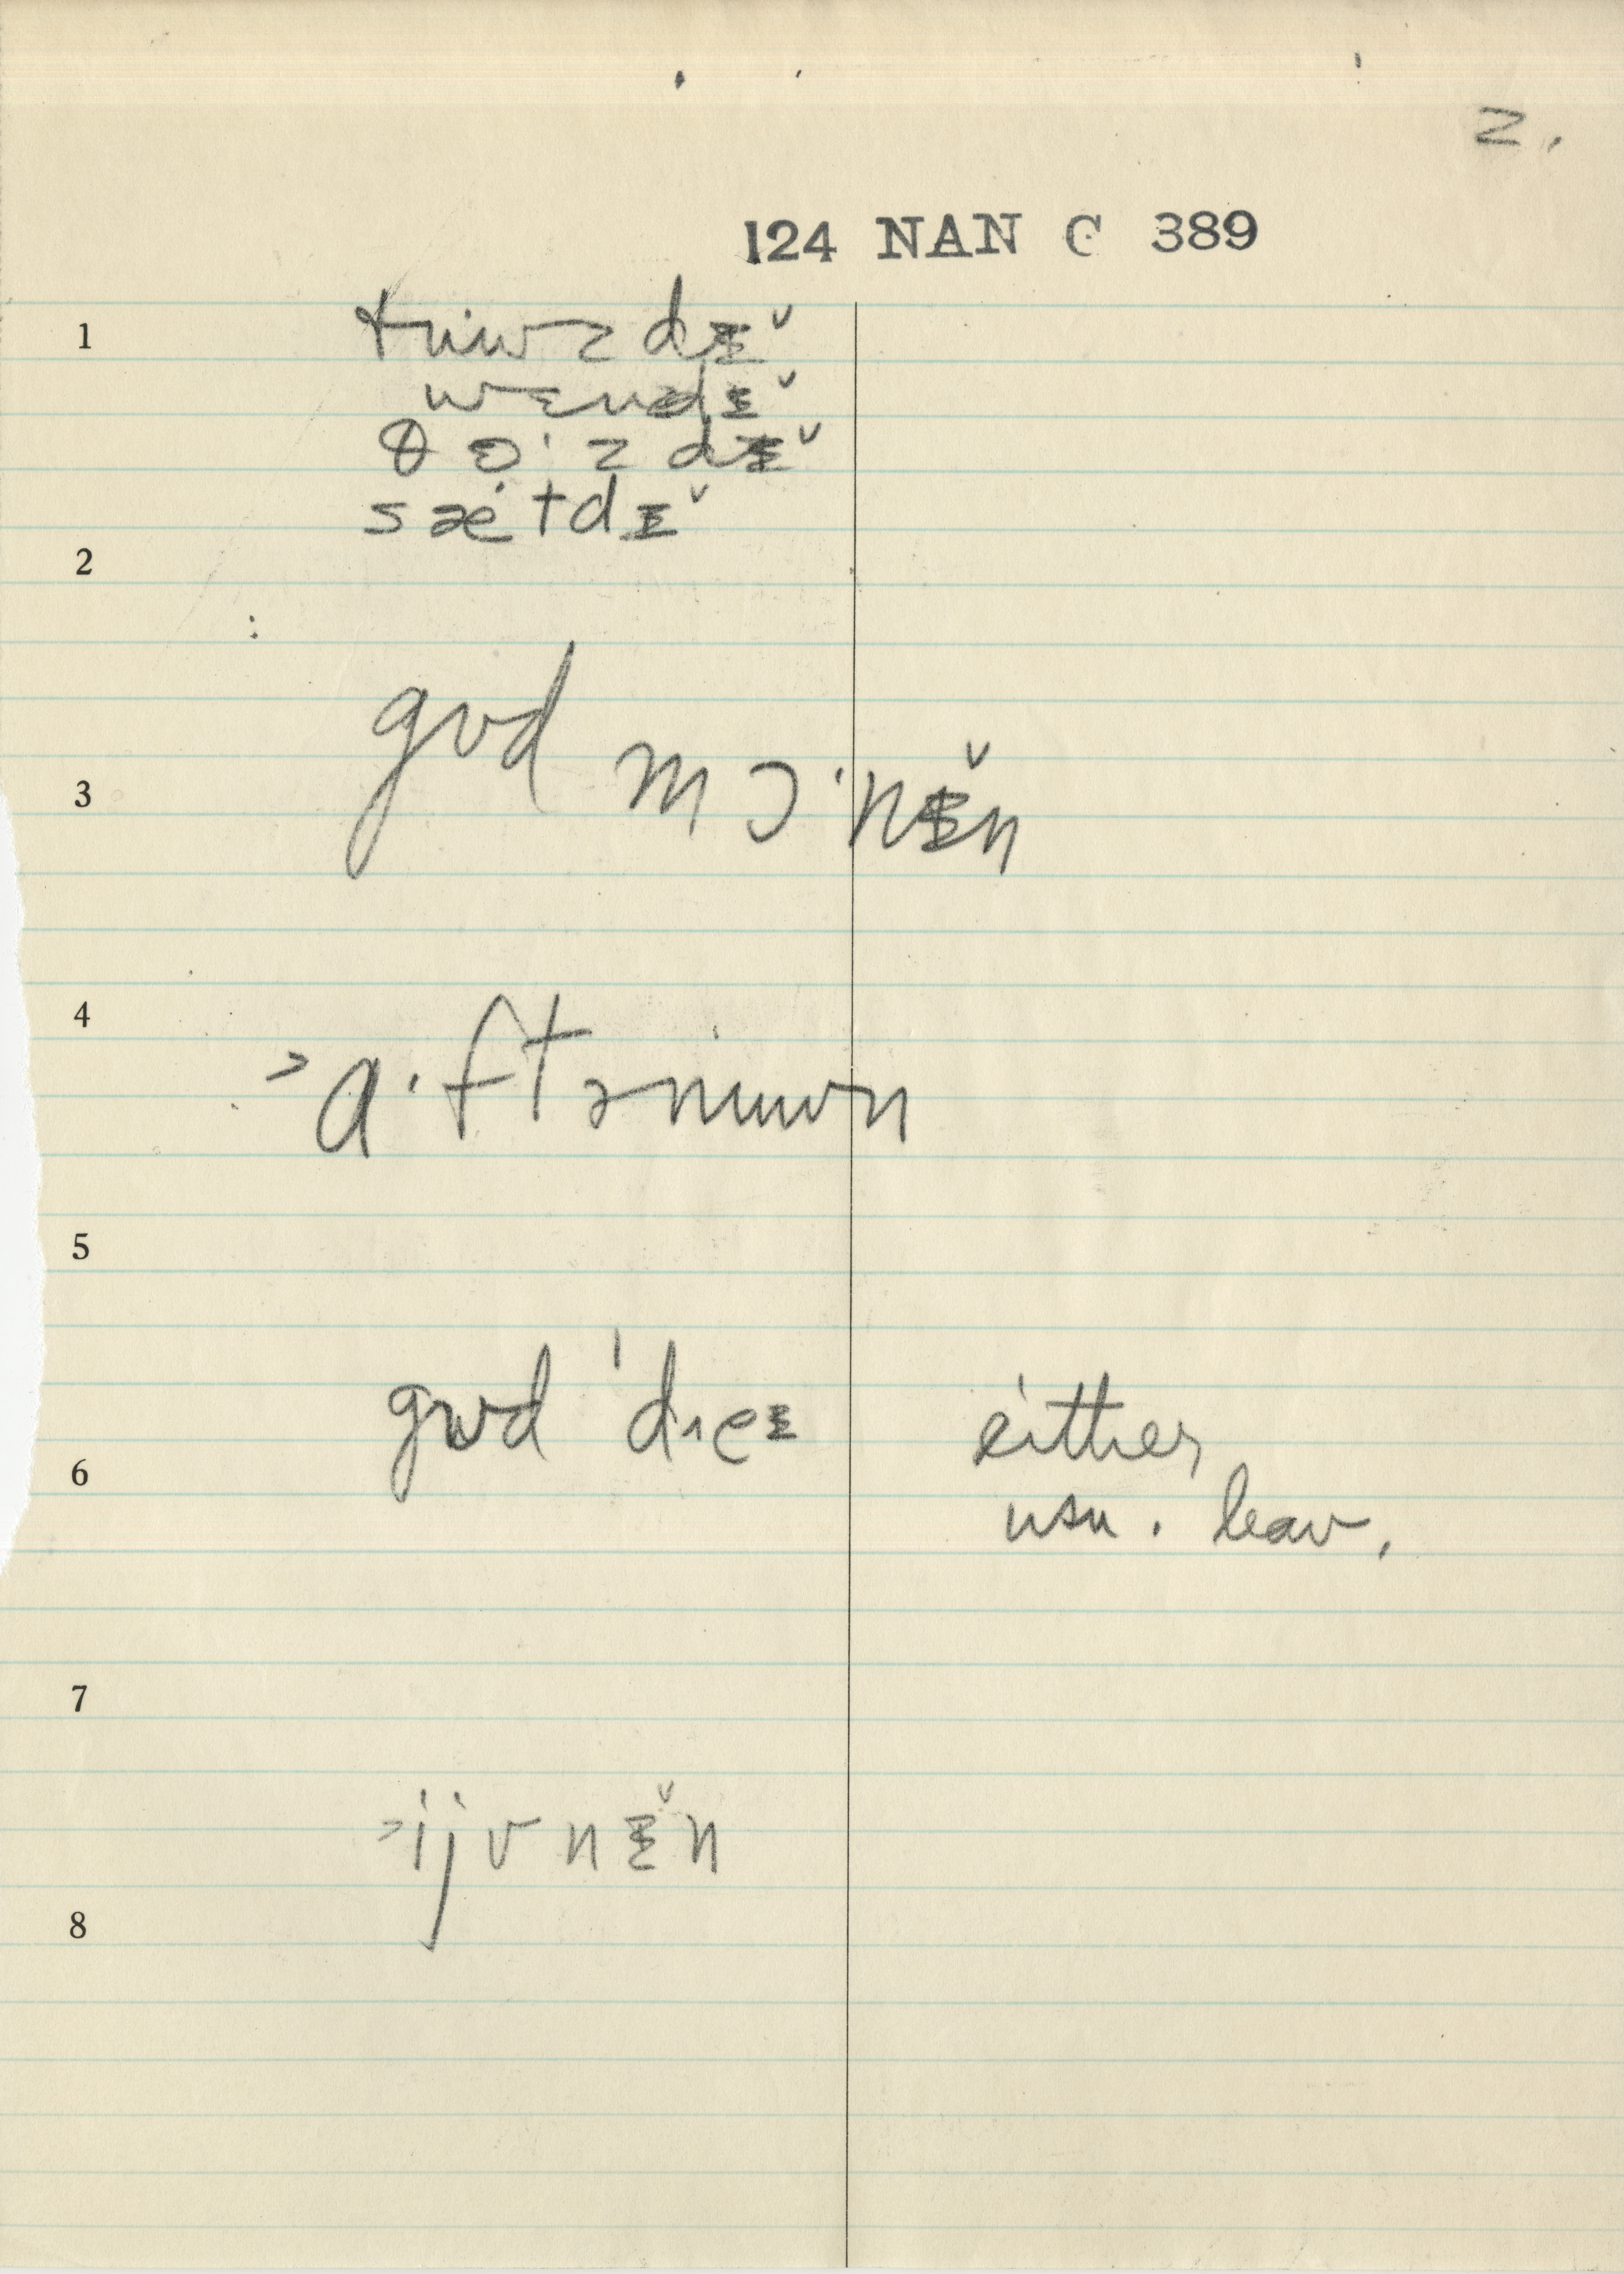 2.
124 NAN C 389
1
tɨʉwzdɪ̆
wɛnzdɪ̆
θɜ·zdɪ̆
sætdɪ̆
2
gʊd mɔ·nɪ̆n
3
4
>ɑ·ftənʉwn
5
gʊd ˈdɛɪ either
6
usu. leav.
7
>ijvnɪ̆n
8